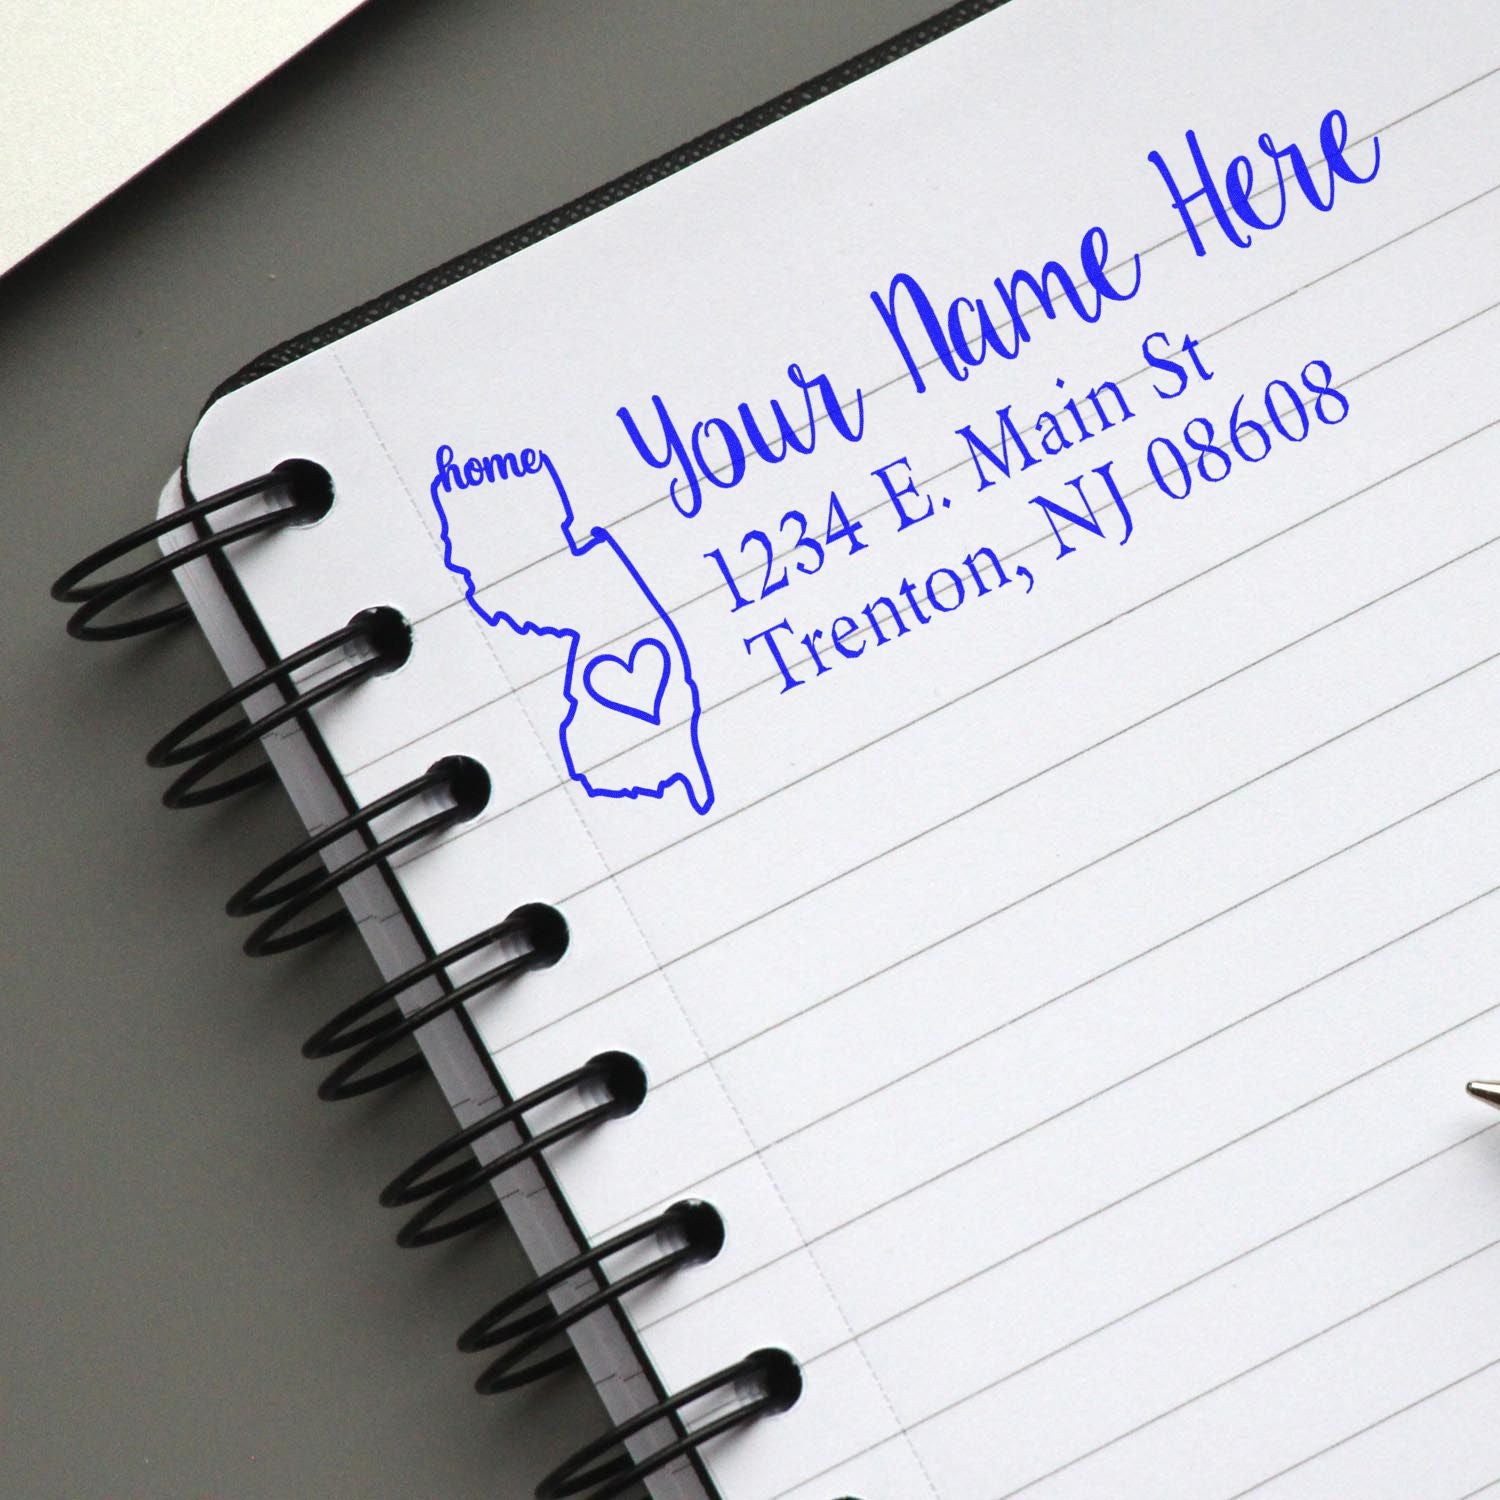 home
Your Name Here
1234 E. Main St
Trenton, NJ 08608